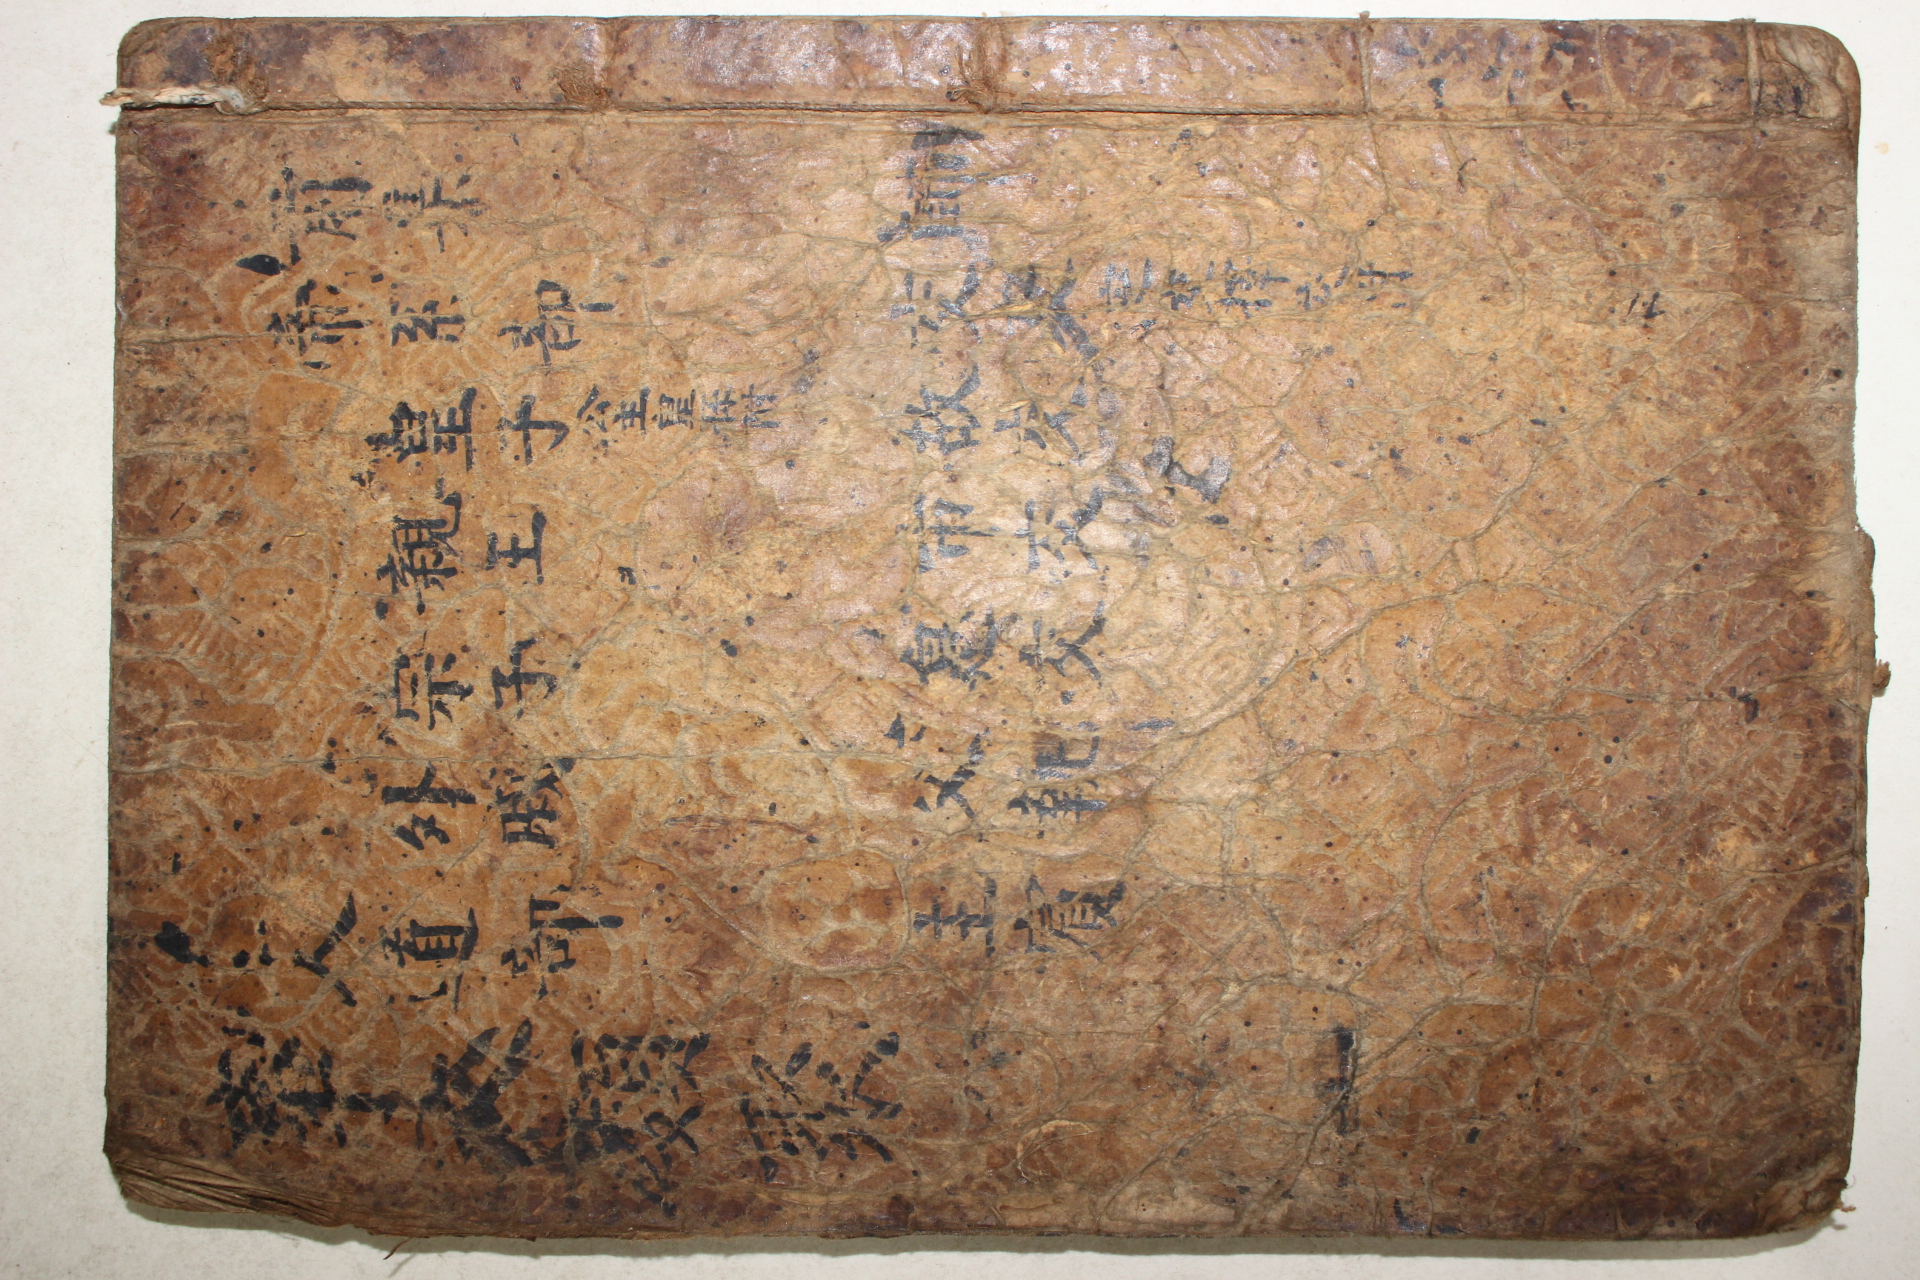 前集
帝系部
皇子 公主皇孫附
親王
宗子
外戚
人道部
師
交友
故交
市交
息交
父執
主賓
事文類聚